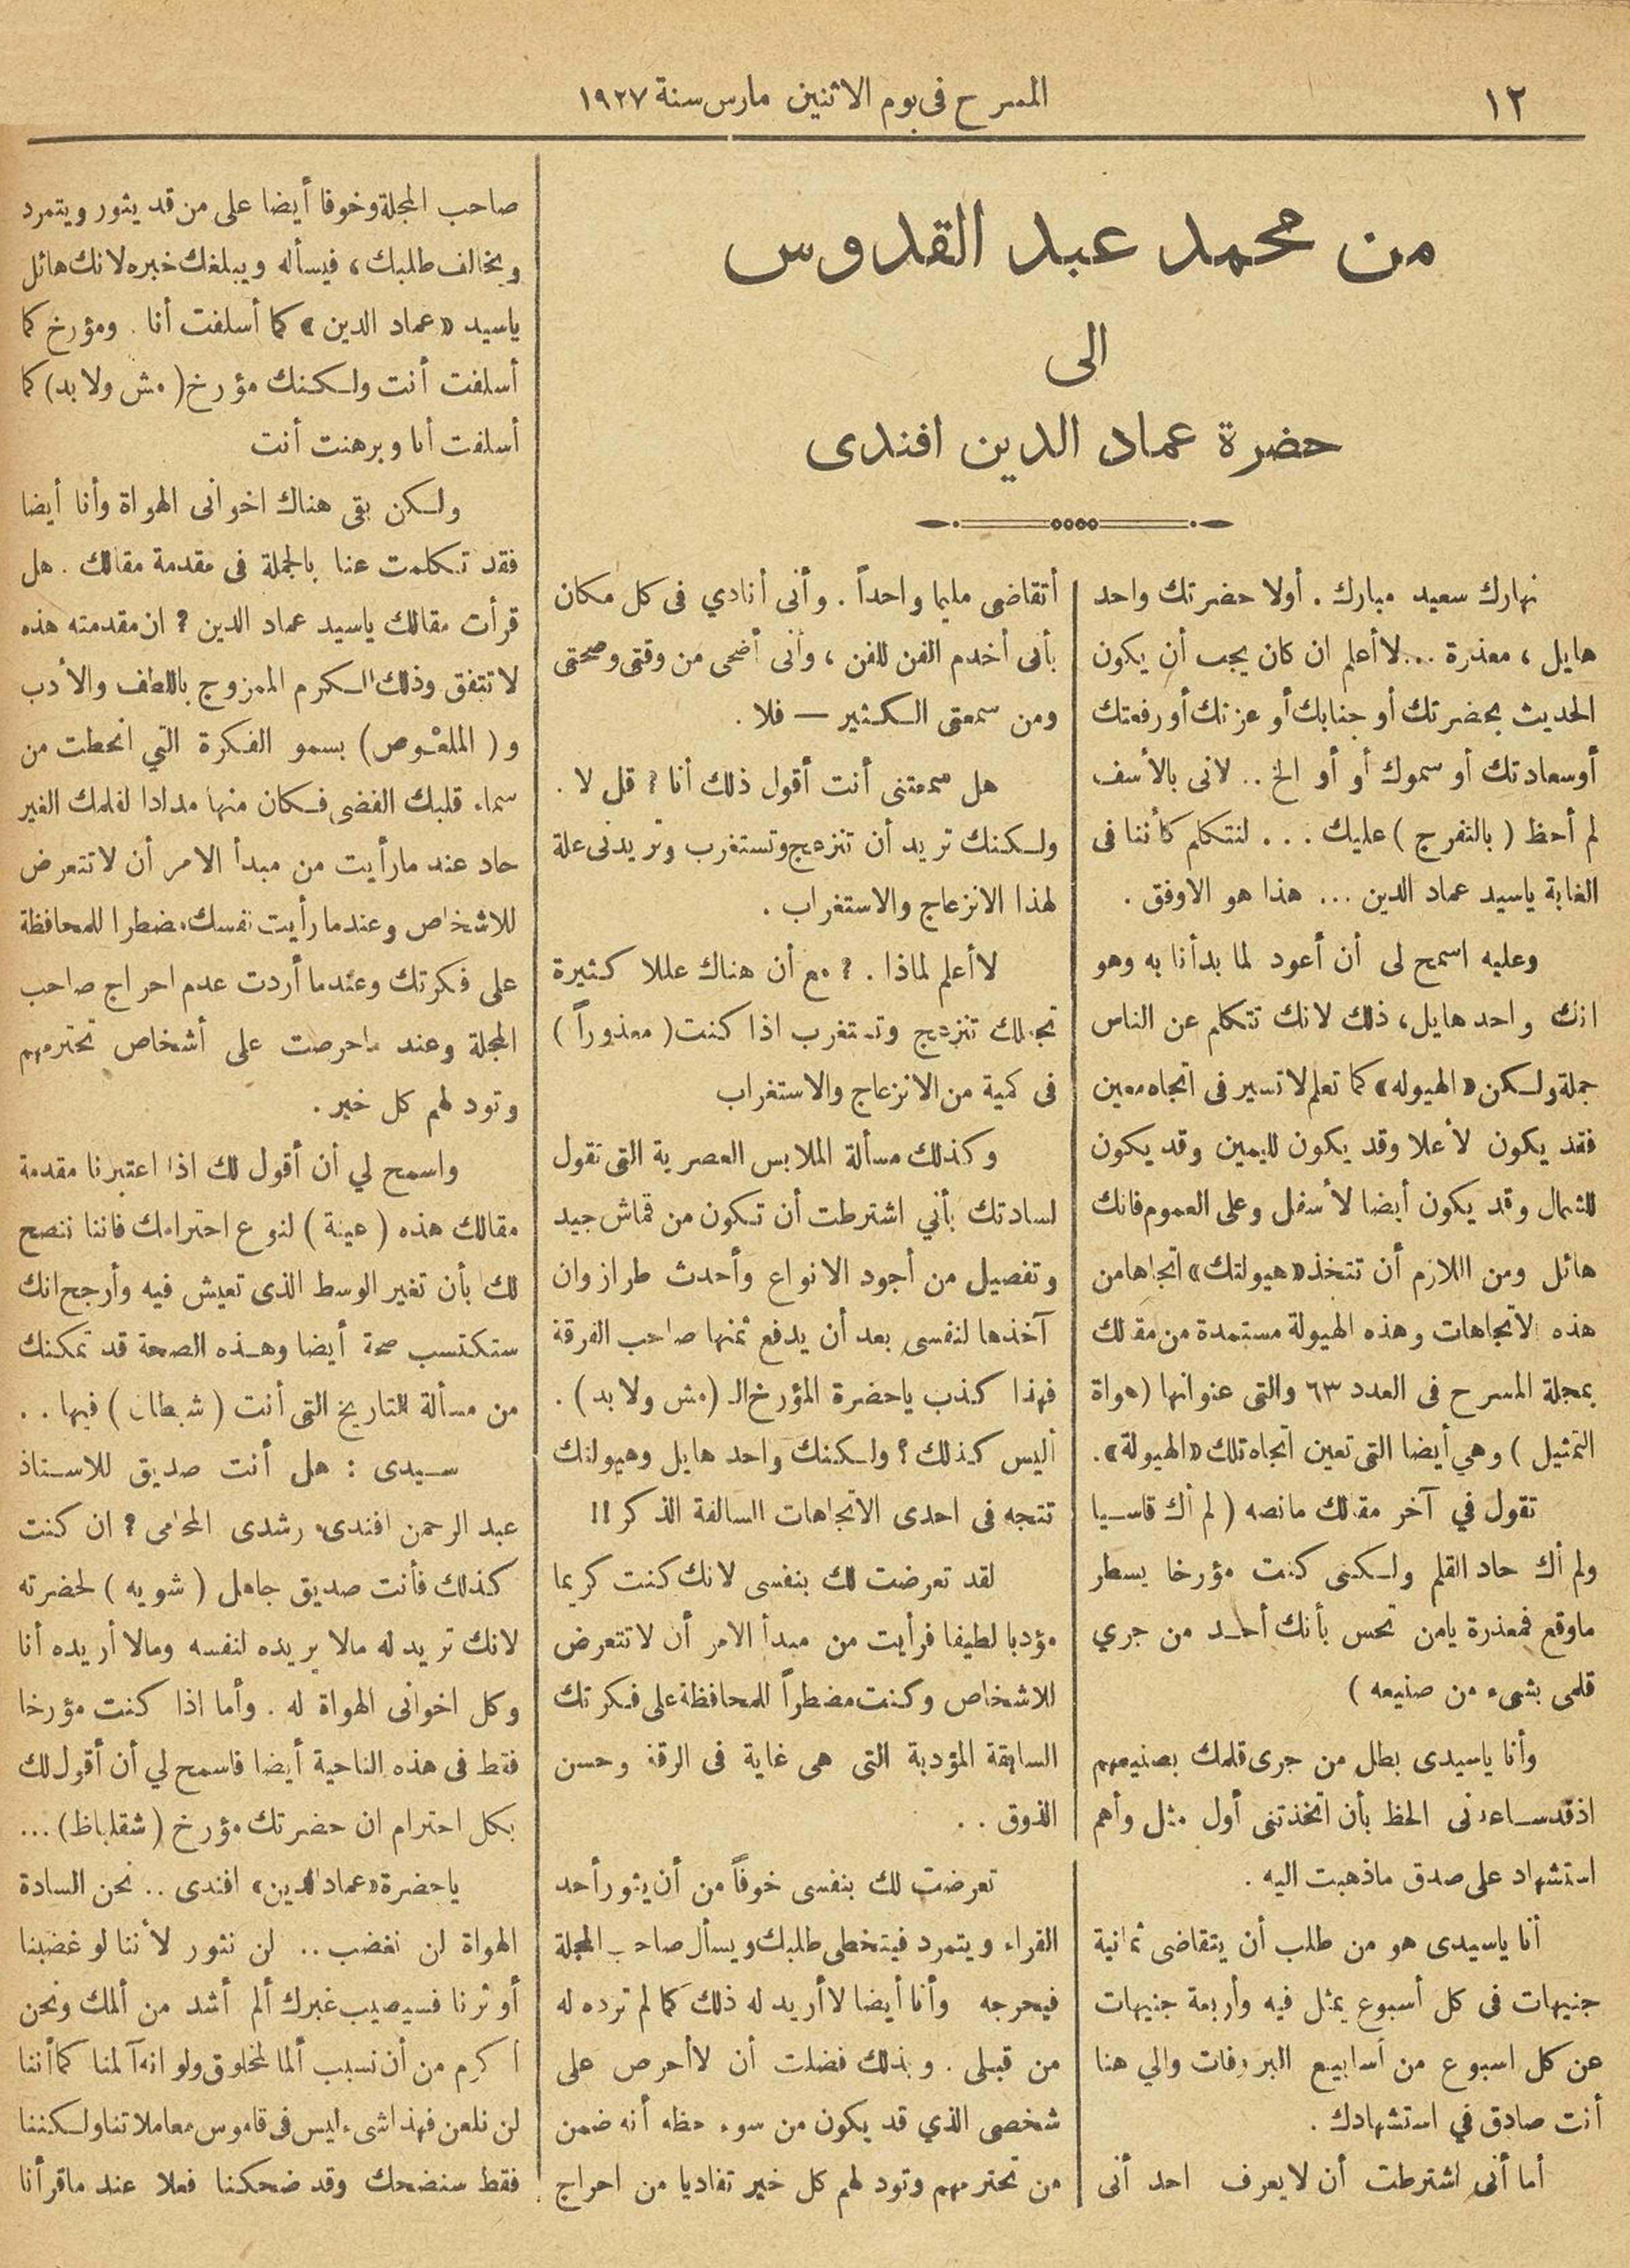 ١٢
المسرح في يوم الاثنين مارس سنة ١٩٢٧
من محمد عبد القدوس
الى
حضرة عماد الدين افندى
نهارك سعيد مبارك . أولا حضرتك واحد
هايل ، معذرة ... لا أعلم ان كان يجب أن يكون
الحديث بحضرتك أو جنابك أو عزتك أو رفعتك
أو سعادتك أو سموك أو أو الخ .. لانى بالأسف
لم أحظ ( بالتفرج ) عليك ... لنتكلم كأننا فى
الغابة ياسيد عماد الدين ... هذا هو الاوفق .
وعليه اسمح لى أن أعود لما بدأنا به وهو
انك واحد هايل، ذلك لانك تتكلم عن الناس
جملة ولكن «الهيوله» كما تعلم لا تسير فى اتجاه معين
فقد يكون لأعلا وقد يكون لليمين وقد يكون
للشمال وقد يكون أيضا لأسفل وعلى العموم فانك
هائل ومن اللازم أن تتخذ «هيولتك» اتجاها من
هذه الاتجاهات وهذه الهيولة مستمدة من مقالك
بمجلة المسرح فى العدد ٦٣ والتى عنوانها (هواة
التمثيل ) وهي أيضا التى تعين اتجاه تلك «الهيولة».
تقول في آخر مقالك مانصه ( لم أك قاسيا
ولم أك حاد القلم ولكنى كنت مؤرخا يسطر
ماوقع فمعذرة يامن تحس بأنك أحد من جري
قلمى بشىء من صنيعه )
وأنا ياسيدى بطل من جرى قلمك بصنيعهم
اذ قد ساعدنى الحظ بأن اتخذتنى أول مثل وأهم
استشهاد على صدق ماذهبت اليه .
أنا ياسيدى هو من طلب أن يتقاضى ثمانية
جنيهات فى كل أسبوع يمثل فيه وأربعة جنيهات
عن كل اسبوع من أسابيع البروفات والي هنا
أنت صادق في استشهادك .
أما أنى اشترطت أن لا يعرف احد أنى
أتقاضى مليما واحداً . وأنى أنادي فى كل مكان
بأنى أخدم الفن للفن ، وأنى أضحى من وقتى وصحتى
ومن سمعتى الكثير — فلا .
هل سمعتنى أنت أقول ذلك أنا ؟ قل لا .
ولكنك تريد أن تنزعج وتستغرب وتريدنى علة
لهذا الانزعاج والاستغراب .
لا أعلم لماذا . ؟ مع أن هناك عللا كثيرة
تجعلك تنزعج وتستغرب اذا كنت ( معذوراً )
فى كمية من الانزعاج والاستغراب
وكذلك مسألة الملابس العصرية التى تقول
لسادتك بأني اشترطت أن تكون من قماش جيد
وتفصيل من أجود الانواع وأحدث طراز وان
آخذها لنفسى بعد أن يدفع ثمنها صاحب الفرقة
فهذا كذب ياحضرة المؤرخ الـ (مش ولا بد) .
أليس كذلك ؟ ولكنك واحد هايل وهيولتك
تتجه فى احدى الاتجاهات السالفة الذكر !!
لقد تعرضت لك بنفسى لانك كنت كريما
مؤدبا لطيفا فرأيت من مبدأ الامر أن لا تتعرض
للاشخاص وكنت مضطراً للمحافظة على فكرتك
السابقة المؤدبة التى هى غاية فى الرقة وحسن
الذوق . .
تعرضت لك بنفسى خوفاً من أن يثور أحد
القراء ويتمرد فيتخطى طلبك ويسأل صاحب المجلة
فيحرجه وأنا أيضا لا أريد له ذلك كما لم ترده له
من قبلى . وبذلك فضلت أن لا أحرص على
شخصى الذي قد يكون من سوء حظه أنه ضمن
من تحترمهم وتود لهم كل خير تفاديا من احراج
صاحب المجلة وخوفا أيضا على من قد يثور ويتمرد
ويخالف طلبك ، فيسأله ويبلغك خبره لانك هائل
ياسيد «عماد الدين» كما أسلفت أنا . ومؤرخ كما
أسلفت أنت ولكنك مؤرخ (مش ولا بد) كما
أسلفت أنا وبرهنت أنت
ولكن بقى هناك اخوانى الهواة وأنا أيضا
فقد تكلمت عنا بالجملة فى مقدمة مقالك . هل
قرأت مقالك ياسيد عماد الدين ؟ ان مقدمته هذه
لا تتفق وذلك الكرم الممزوج باللطف والأدب
و ( الملغوص ) بسمو الفكرة التي انحطت من
سماء قلبك الفضى فكان منها مدادا لقلمك الغير
حاد عند مارأيت من مبدأ الامر أن لا تتعرض
للاشخاص وعندما رأيت نفسك مضطرا للمحافظة
على فكرتك وعندما أردت عدم احراج صاحب
المجلة وعند ماحرصت على أشخاص تحترمهم
وتود لهم كل خير .
واسمح لي أن أقول لك اذا اعتبرنا مقدمة
مقالك هذه ( عينة ) لنوع احترامك فاننا ننصح
لك بأن تغير الوسط الذى تعيش فيه وأرجح انك
ستكتسب صحة أيضا وهذه الصحة قد تمكنك
من مسألة التاريخ التى أنت ( شبطان ) فيها . .
سيدى : هل أنت صديق للاستاذ
عبد الرحمن افندى رشدى المحامى ؟ ان كنت
كذلك فأنت صديق جاهل ( شويه ) لحضرته
لانك تريد له مالا يريده لنفسه ومالا أريده أنا
وكل اخوانى الهواة له . وأما اذا كنت مؤرخا
فقط فى هذه الناحية أيضا فاسمح لي أن أقول لك
بكل احترام ان حضرتك مؤرخ (شقلباظ) ...
ياحضرة «عماد الدين» افندى .. نحن السادة
الهواة لن نغضب .. لن نثور لأننا لو غضبنا
أو ثرنا فسيصيب غيرك ألم أشد من ألمك ونحن
أكرم من أن نسبب ألما لمخلوق ولو انه آلمنا كما أننا
لن نلعن فهذا شىء ليس فى قاموس معاملاتنا ولكننا
فقط سنضحك وقد ضحكنا فعلا عند ماقرأنا